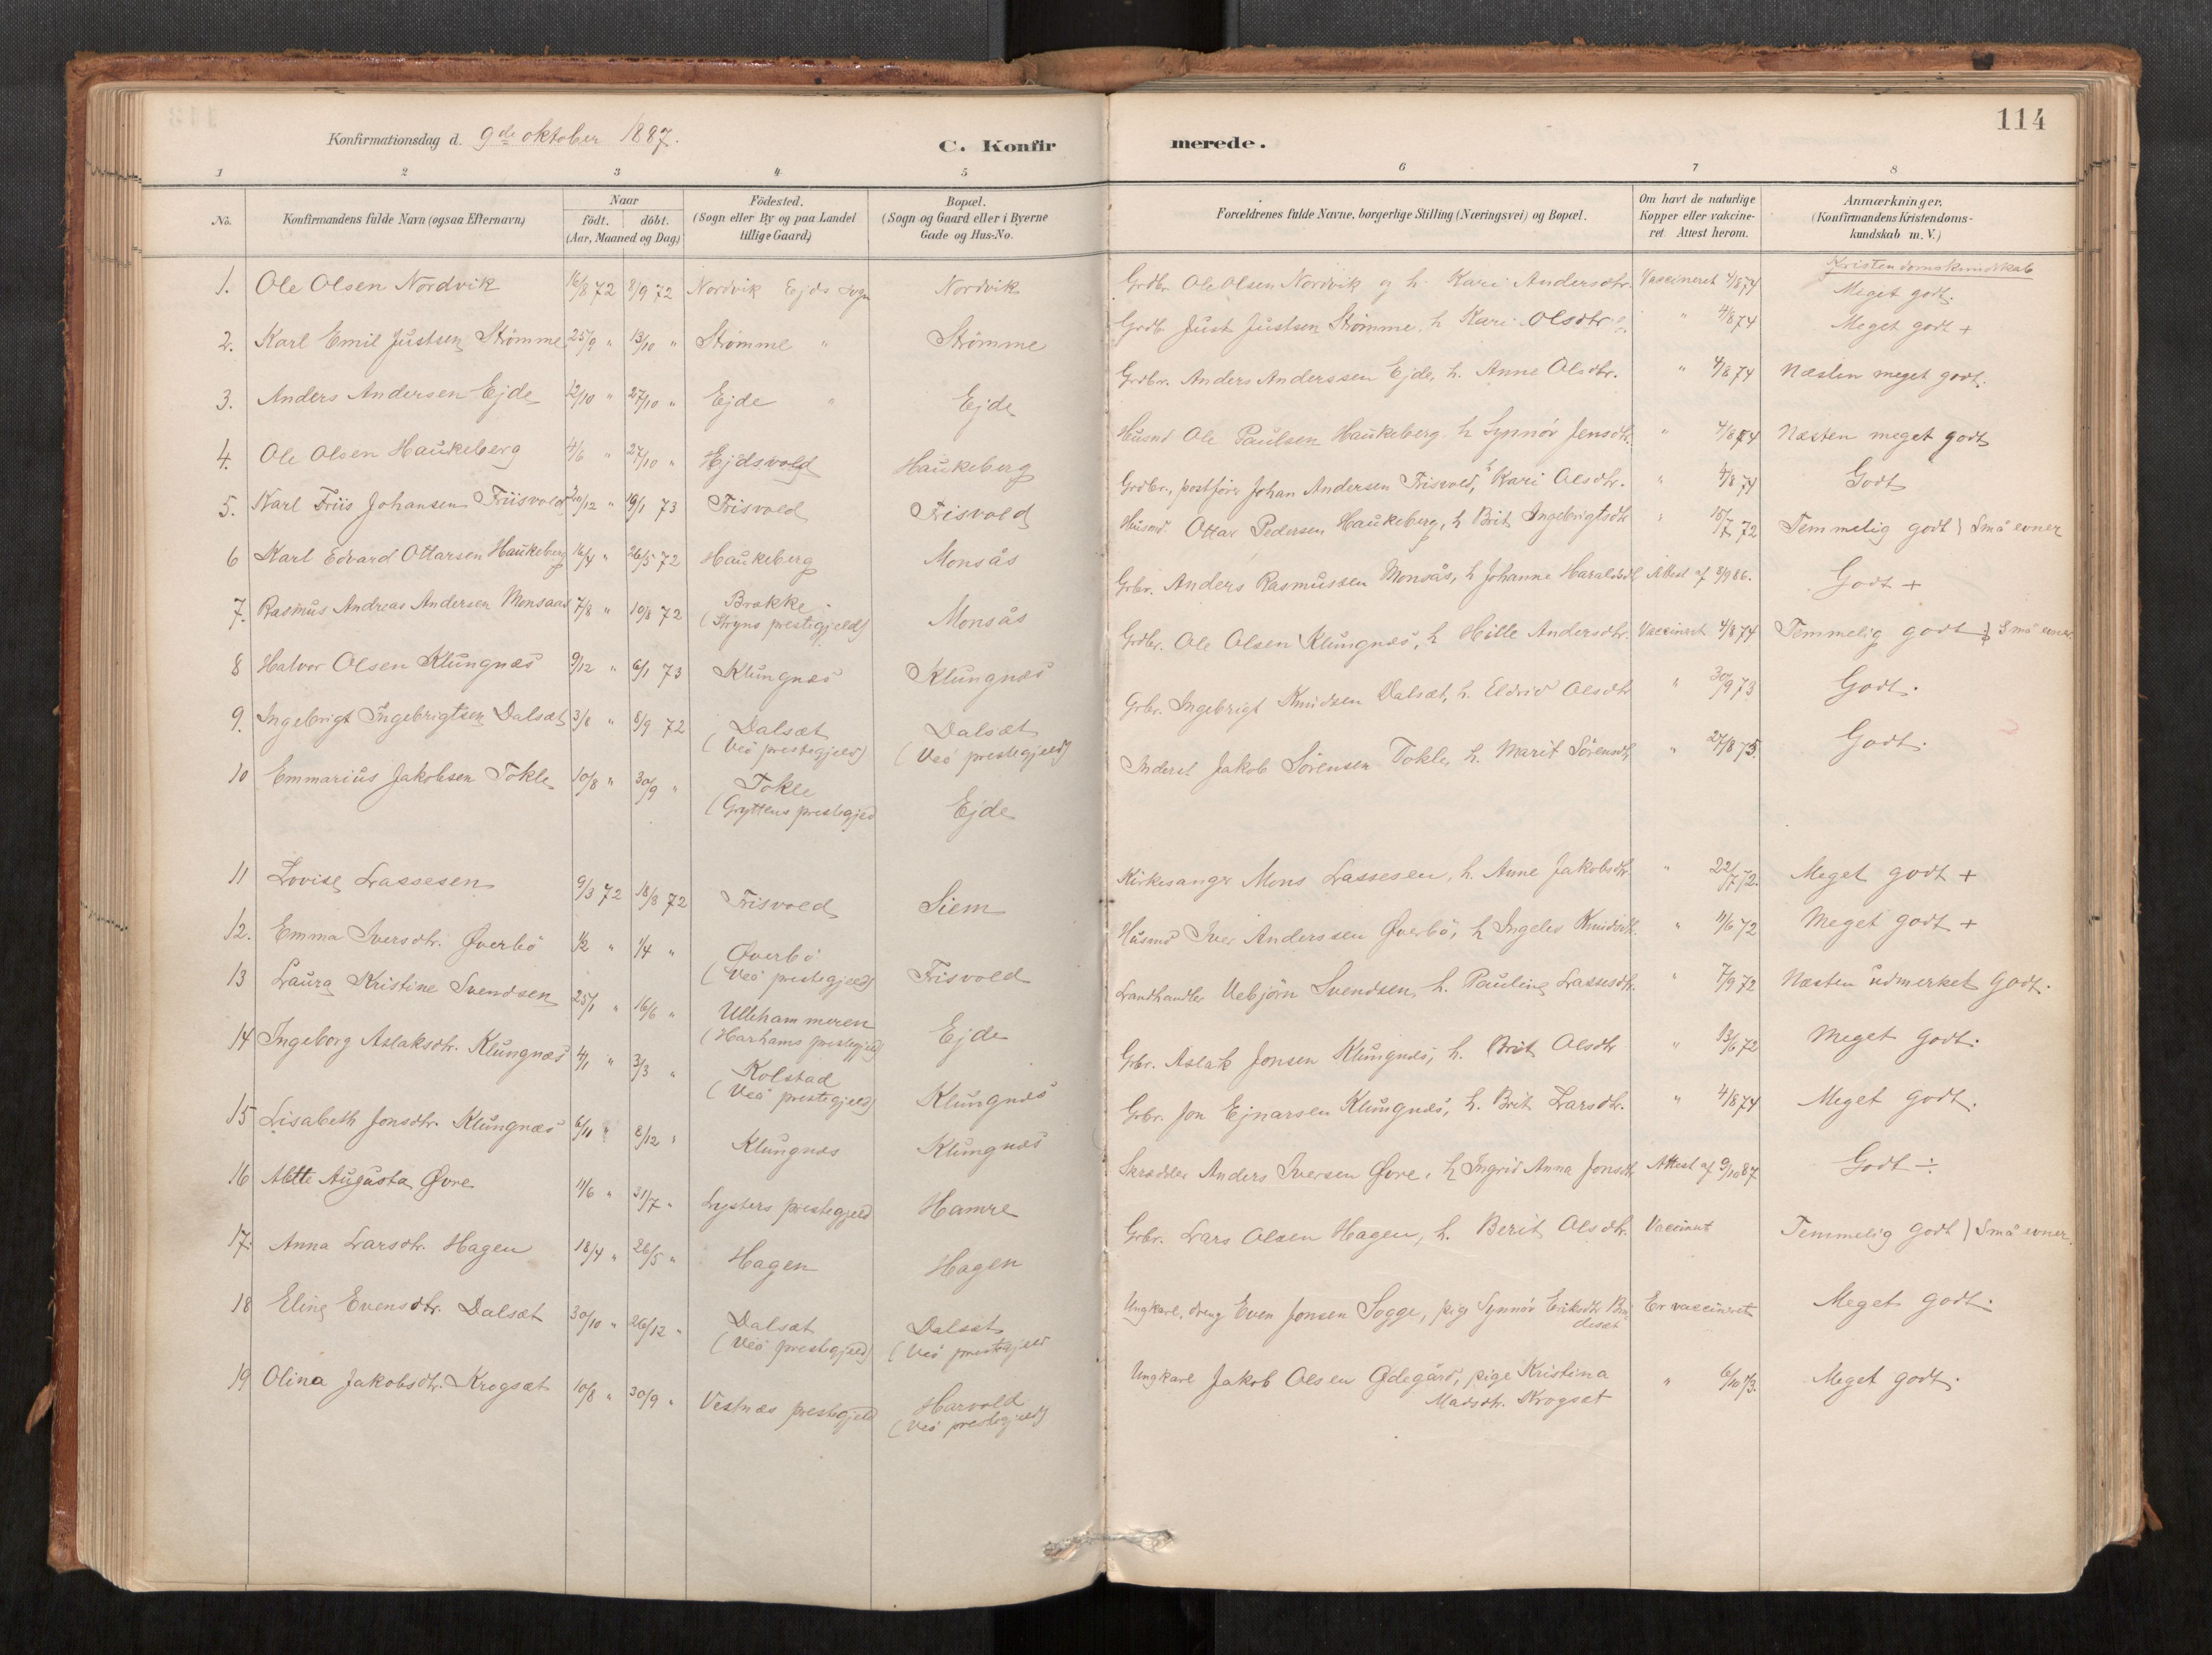 114
Konfirmationsdag d. 9de oktober 1887.
C. Konfir merede.
1 2 3 4 5 6 7 8
No. Konfirmandens fulde Navn (ogsaa Efternavn) Naar födt. döbt. (Aar, Maaned og Dag) Födested. (Sogn eller By og paa Landet tillige Gaard) Bopæl. (Sogn og Gaard eller i Byerne Gade og Hus-No. Forældrenes fulde Navne, borgerlige Stilling (Næringsvei) og Bopæl. Om havt de naturlige Kopper eller vakcineret Attest herom. Anmærkninger. (Konfirmandens Kristendomskundskab m. V.)
Kristendomskundskab
1. Ole Olsen Nordvik 16/8 72 8/9 72 Nordvik Ejds sogn Nordvik Grdbr. Ole Olsen Nordvik og h. Kari Andersdtr. Vaccineret 4/8 74 Meget godt.
2. Karl Emil Justsen Strömme 25/9 " 13/10 " Strömme " Strömme Grdb. Just Justsen Strömme, h. Kari Olsdtr. " 4/8 74 Meget godt +
3. Anders Andersen Ejde 12/10 " 27/10 " Ejde " Ejde Grdbr. Anders Anderssen Ejde, h. Anne Olsdtr. " 4/8 74 Næsten meget godt.
4. Ole Olsen Haukeberg 4/6 " 27/10 " Ejdsvold Haukeberg Husmd Ole Paulsen Haukeberg h Synnöv Jensdtr. " 4/8 74 Næsten meget godt
5. Karl Friis Johansen Friisvold 20/12 " 19/1 73 Frisvold Frisvold Grdbr., postförer Johan Andersen Frisvold, h Kari Olsdtr. " 4/8 74 Godt
6 Karl Edvard Ottarsen Haukeberg 16/4 " 26/5 72 Haukeberg Monsås Husmd Ottar Pedersen Haukeberg, h Brit Ingebrigtsdtr " 15/7 72 Temmelig godt) Små evner
7. Rasmus Andreas Andersen Monsaas 7/8 " 10/8 72 Brække (Stryns prestegjeld) Monsås Grbr. Anders Rasmussen Monsås, h Johanne Haraldsdtr Attest af 8/9 86. Godt +
8 Halvor Olsen Klungnæs 9/12 " 6/1 73 Klungnæs Klungnæs Grdbr. Ole Olsen Klungnæs, h Hille Andersdtr. Vaccineret 4/8 74 Temmelig godt Små evner
9. Ingebrigt Ingebrigtsen Dalsæt 3/8 " 8/9 72 Dalsæt (Veö prestegjeld) Dalsæt (Veö prestegjeld) Grbr. Ingebrigt Knudsen Dalsæt, h. Eldrid Olsdtr " 30/9 73 Godt.
10 Emmarius Jakobsen Tokle 10/8 " 30/9 " Tokle (Gryttens prestegjeld Ejde Inderst Jakob Sörensen Tokle, h. Marit Sörensdtr " 27/8 75. Godt.
11 Lovise Lassesen 9/3 72 18/3 72 Frisvold Siem Kirkesanger Mons Lassesen, h. Anne Jakobsdtr. " 22/7 72. Meget godt +
12. Emma Iversdtr. Överbö 1/2 " 1/4 " Överbö (Veö prestegjeld) Frisvold Husmd Iver Anderssen Överbö, h Ingelev Knudsdtr. " 11/6 72 Meget godt +
13 Laura Kristine Svendsen 25/1 " 16/6 " Ullehammeren (Harhams prestegjeld) Ejde Landhandler Vebjörn Svendsen, h. Pauline Lassesdtr. " 7/9 72 Næsten udmerket godt.
14 Ingeborg Aslaksdtr. Klungnæs 4/1 " 3/3 " Kolstad (Veö prestegjeld) Klungnæs Grbr. Aslak Jonsen Klungnæs, h. Brit Olsdtr " 13/6 72 Meget godt.
15 Lisabeth Jonsdtr. Klungnæs 6/11 " 8/12 " Klungnæs Klungnæs Grbr. Jon Ejnarsen Klungnæs, h. Brit Larsdtr. " 4/8 74 Meget godt.
16 Augusta Övre 11/6 " 31/7 " Lysters prestegjeld Hamre Skrædder Anders Iversen Övre, h Ingrid Anna Jonsdtr Attest af 9/10 87 Godt ÷
17. Anna Larsdtr. Hagen 18/4 " 26/5 " Hagen Hagen Grbr. Lars Olsen Hagen, h. Berit Olsdtr. Temmelig godt) Små evner.
18 Eline Evensdtr. Dalsæt 30/10 " 26/12 " Dalsæt (Veö prestegjeld) Dalsæt (Veö prestegjeld Ungkarl, dreng Even Jonsen Sogge, pige Synnöv Eriksdtr Er vaccineret Meget godt.
19 Olina Jakobsdtr. Krogsæt 10/8 " 30/9 " Vestnæs prestegjeld Harvold (Veö prestegjeld) Ungkarl Jakob Olsen Ödegård, pige Kristina Madsdtr. Krogsæt " 6/10 73. Meget godt.